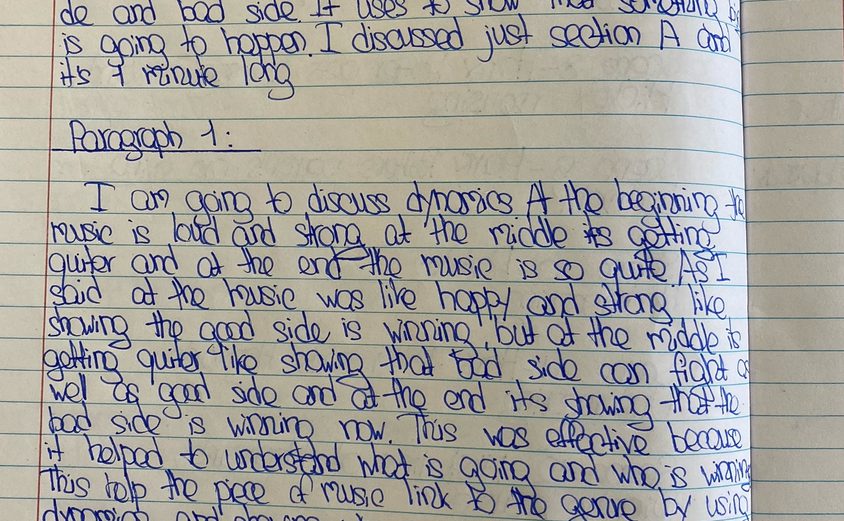 de and bad side. It uses to show that something
is going to happen. I discussed just section A and
its 1 minute long
Paragraph 1:
I am going to discuss dynamics At the beginning the
music is loud and strong at the middle its getting
quiter and at the end the music is so quite. As I
said at the music was like happy and strong like
showing the good side is winning, but at the middle is
getting quiter like showing that bad side can fight as
well as good side and at the end its showing that the
bad side is winning now. This was effective because
it helped to understand what is going and who is winning
This help the piece of music link to the genre by using
dynamics and